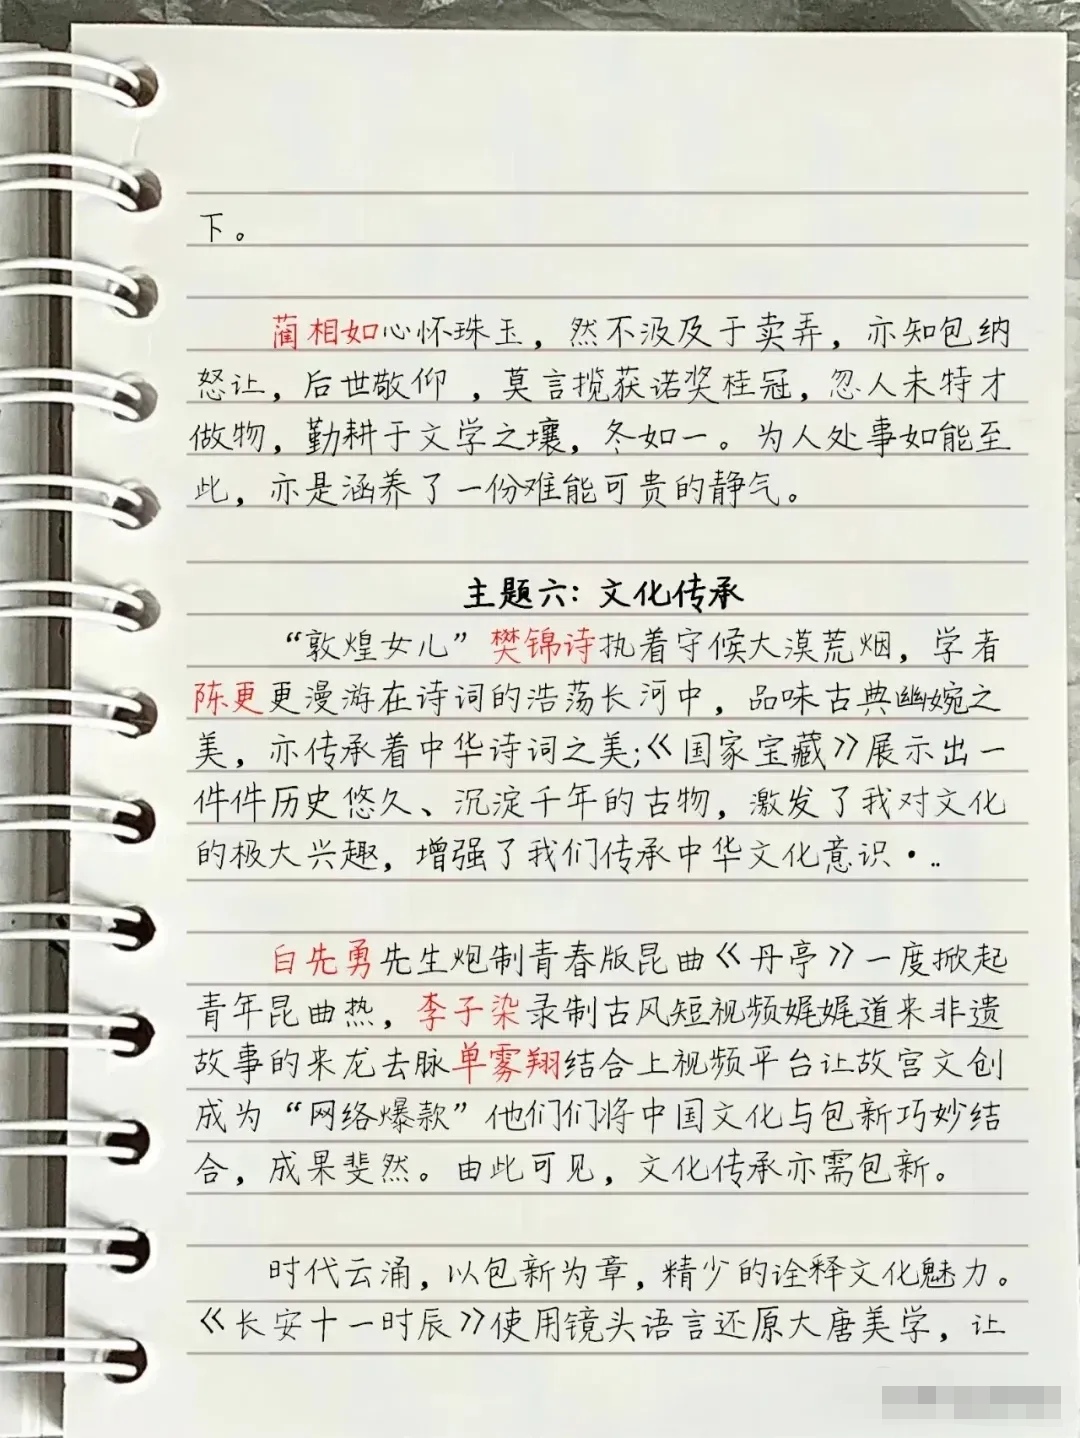 下。
蔺相如心怀珠玉，然不汲及于卖弄，亦知包纳
怒让，后世敬仰，莫言揽获诺奖桂冠，忽人未特才
做物，勤耕于文学之壤，冬如一。为人处事如能至
此，亦是涵养了一份难能可贵的静气。
主题六：文化传承
“敦煌女儿”樊锦诗执着守候大漠荒烟，学者
陈更更漫游在诗词的浩荡长河中，品味古典幽婉之
美，亦传承着中华诗词之美;《国家宝藏》展示出一
件件历史悠久、沉淀千年的古物，激发了我对文化
的极大兴趣，增强了我们传承中华文化意识·..
白先勇先生炮制青春版昆曲《丹亭》一度掀起
青年昆曲热，李子染录制古风短视频娓娓道来非遗
故事的来龙去脉单雾翔结合上视频平台让故宫文创
成为“网络爆款”他们们将中国文化与包新巧妙结
合，成果斐然。由此可见，文化传承亦需包新。
时代云涌，以包新为章，精少的诠释文化魅力。
《长安十一时辰》使用镜头语言还原大唐美学，让